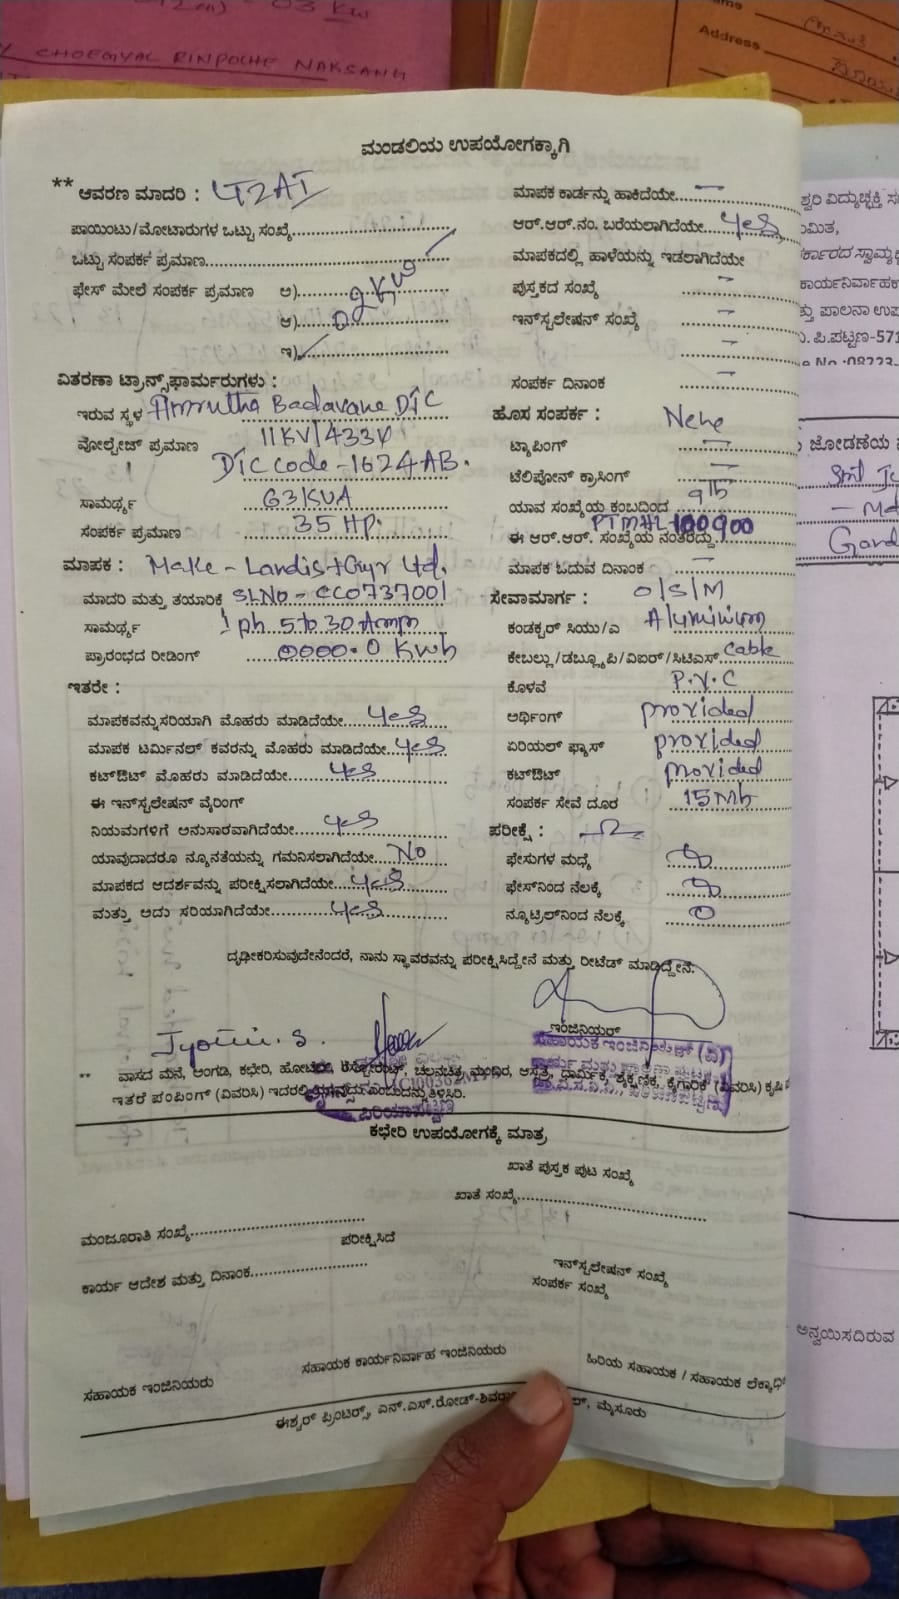 CHOEGYAL RINPOCHE NAKSANG
Address
ಮಂಡಲಿಯ ಉಪಯೋಗಕ್ಕಾಗಿ
** ಆವರಣ ಮಾದರಿ : LT2AI
ಪಾಯಿಂಟು/ಮೋಟಾರುಗಳ ಒಟ್ಟು ಸಂಖ್ಯೆ
ಒಟ್ಟು ಸಂಪರ್ಕ ಪ್ರಮಾಣ
ಫೇಸ್ ಮೇಲೆ ಸಂಪರ್ಕ ಪ್ರಮಾಣ ಅ)
ಆ)
ಇ)
ವಿತರಣಾ ಟ್ರಾನ್ಸ್‌ಫಾರ್ಮರುಗಳು :
ಇರುವ ಸ್ಥಳ Amrutha Badavane DTC
ವೋಲ್ಟೇಜ್ ಪ್ರಮಾಣ 11KV/433V
DTC code - 1624 AB.
ಸಾಮರ್ಥ್ಯ 63 KVA
ಸಂಪರ್ಕ ಪ್ರಮಾಣ 35 HP.
ಮಾಪಕ : Make - Landis+Gyr Ltd.
ಮಾದರಿ ಮತ್ತು ತಯಾರಿಕೆ SLNO - CC0737001
ಸಾಮರ್ಥ್ಯ 1 ph 5 to 30 Amp
ಪ್ರಾರಂಭದ ರೀಡಿಂಗ್ 0000.0 Kwh
ಇತರೇ :
ಮಾಪಕವನ್ನು ಸರಿಯಾಗಿ ಮೊಹರು ಮಾಡಿದೆಯೇ yes
ಮಾಪಕ ಟರ್ಮಿನಲ್ ಕವರನ್ನು ಮೊಹರು ಮಾಡಿದೆಯೇ yes
ಕಟ್‌ಔಟ್ ಮೊಹರು ಮಾಡಿದೆಯೇ yes
ಈ ಇನ್‌ಸ್ಟಲೇಷನ್ ವೈರಿಂಗ್
ನಿಯಮಗಳಿಗೆ ಅನುಸಾರವಾಗಿದೆಯೇ yes
ಯಾವುದಾದರೂ ನ್ಯೂನತೆಯನ್ನು ಗಮನಿಸಲಾಗಿದೆಯೇ No
ಮಾಪಕದ ಆದರ್ಶವನ್ನು ಪರೀಕ್ಷಿಸಲಾಗಿದೆಯೇ yes
ಮತ್ತು ಅದು ಸರಿಯಾಗಿದೆಯೇ yes
ಮಾಪಕ ಕಾರ್ಡನ್ನು ಹಾಕಿದೆಯೇ —
ಆರ್.ಆರ್.ನಂ. ಬರೆಯಲಾಗಿದೆಯೇ yes
ಮಾಪಕದಲ್ಲಿ ಹಾಳೆಯನ್ನು ಇಡಲಾಗಿದೆಯೇ —
ಪುಸ್ತಕದ ಸಂಖ್ಯೆ —
ಇನ್‌ಸ್ಟಲೇಷನ್ ಸಂಖ್ಯೆ —
ಸಂಪರ್ಕ ದಿನಾಂಕ —
ಹೊಸ ಸಂಪರ್ಕ :
ಟ್ಯಾಪಿಂಗ್ —
ಟೆಲಿಫೋನ್ ಕ್ರಾಸಿಂಗ್ —
ಯಾವ ಸಂಖ್ಯೆಯ ಕಂಬದಿಂದ 9th
ಈ ಆರ್.ಆರ್. ಸಂಖ್ಯೆಯ ನಂತರದ್ದು
ಮಾಪಕ ಓದುವ ದಿನಾಂಕ —
ಸೇವಾಮಾರ್ಗ : O/S/M
ಕಂಡಕ್ಟರ್ ಸಿಯು/ಎ Aluminium
ಕೇಬಲ್ಲು/ಡಬ್ಲ್ಯೂಪಿ/ವಿಐರ್/ಸಿಟಿಎಸ್ Cable
ಕೊಳವೆ P.V.C
ಅರ್ಥಿಂಗ್ provided
ಏರಿಯಲ್ ಫ್ಯೂಸ್ provided
ಕಟ್‌ಔಟ್ provided
ಸಂಪರ್ಕ ಸೇವೆ ದೂರ
ಪರೀಕ್ಷೆ :
ಫೇಸುಗಳ ಮಧ್ಯೆ
ಫೇಸ್‌ನಿಂದ ನೆಲಕ್ಕೆ
ನ್ಯೂಟ್ರಲ್‌ನಿಂದ ನೆಲಕ್ಕೆ 0
ದೃಢೀಕರಿಸುವುದೇನೆಂದರೆ, ನಾನು ಸ್ಥಾವರವನ್ನು ಪರೀಕ್ಷಿಸಿದ್ದೇನೆ ಮತ್ತು ರೀಟೆಡ್ ಮಾಡಿದ್ದೇನೆ.
ಇಂಜಿನಿಯರ್
** ವಾಸದ ಮನೆ, ಅಂಗಡಿ, ಕಛೇರಿ, ಹೋಟೆಲು, ಚಲನಚಿತ್ರ ಮಂದಿರ, ಆಸ್ಪತ್ರೆ, ಧಾರ್ಮಿಕ, ಶೈಕ್ಷಣಿಕ, ಕೈಗಾರಿಕೆ (ವಿವರಿಸಿ) ಕೃಷಿ
ಇತರೆ ಪಂಪಿಂಗ್ (ವಿವರಿಸಿ) ಇದರಲ್ಲಿ ಎಂಬುದನ್ನು ತಿಳಿಸಿರಿ.
ಕಛೇರಿ ಉಪಯೋಗಕ್ಕೆ ಮಾತ್ರ
ಖಾತೆ ಪುಸ್ತಕ ಪುಟ ಸಂಖ್ಯೆ
ಖಾತೆ ಸಂಖ್ಯೆ
ಮಂಜೂರಾತಿ ಸಂಖ್ಯೆ
ಪರೀಕ್ಷಿಸಿದೆ
ಕಾರ್ಯ ಆದೇಶ ಮತ್ತು ದಿನಾಂಕ
ಇನ್‌ಸ್ಟಲೇಷನ್ ಸಂಖ್ಯೆ
ಸಂಪರ್ಕ ಸಂಖ್ಯೆ
ಸಹಾಯಕ ಇಂಜಿನಿಯರು
ಸಹಾಯಕ ಕಾರ್ಯನಿರ್ವಾಹ ಇಂಜಿನಿಯರು
ಹಿರಿಯ ಸಹಾಯಕ / ಸಹಾಯಕ
ಈಶ್ವರ್ ಪ್ರಿಂಟರ್ಸ್, ಎನ್.ಎಸ್.ರೋಡ್- ಮೈಸೂರು
ಅನ್ವಯಿಸದಿರುವ